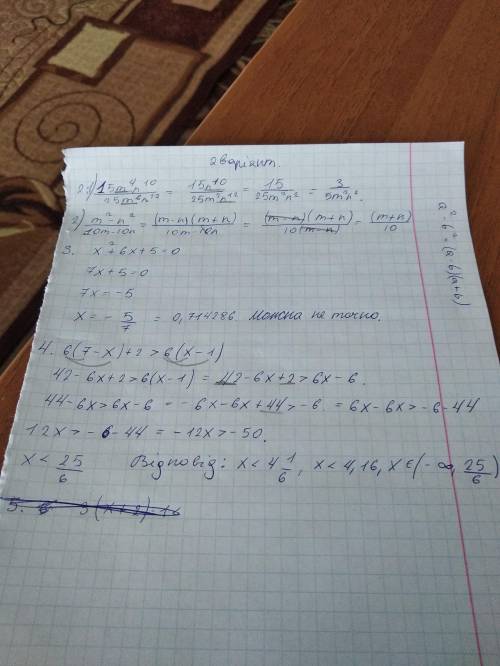 2 варіант.
2. 1) 15m⁴n¹⁰/25m⁶n¹² = 15n¹⁰/25m²n¹² = 15/25m²n² = 3/5m²n².
2) m²-n²/10m-10n = (m-n)(m+n)/10m-10n = (m-n)(m+n)/10(m-n) = (m+n)/10
a²-b²=(a-b)(a+b)
3. x²+6x+5=0
7x+5=0
7x=-5
x=-5/7 = 0,714286 Можна не точно.
4. 6(7-x)+2>6(x-1)
42-6x+2>6(x-1) = 42-6x+2>6x-6.
44-6x>6x-6 = -6x-6x+44>-6 = 6x-6x>-6-44
12x>-6-44 = -12x>-50.
x<25/6 Відповід: x<4 1/6, x<4,16, x∈(-∞, 25/6)
5.